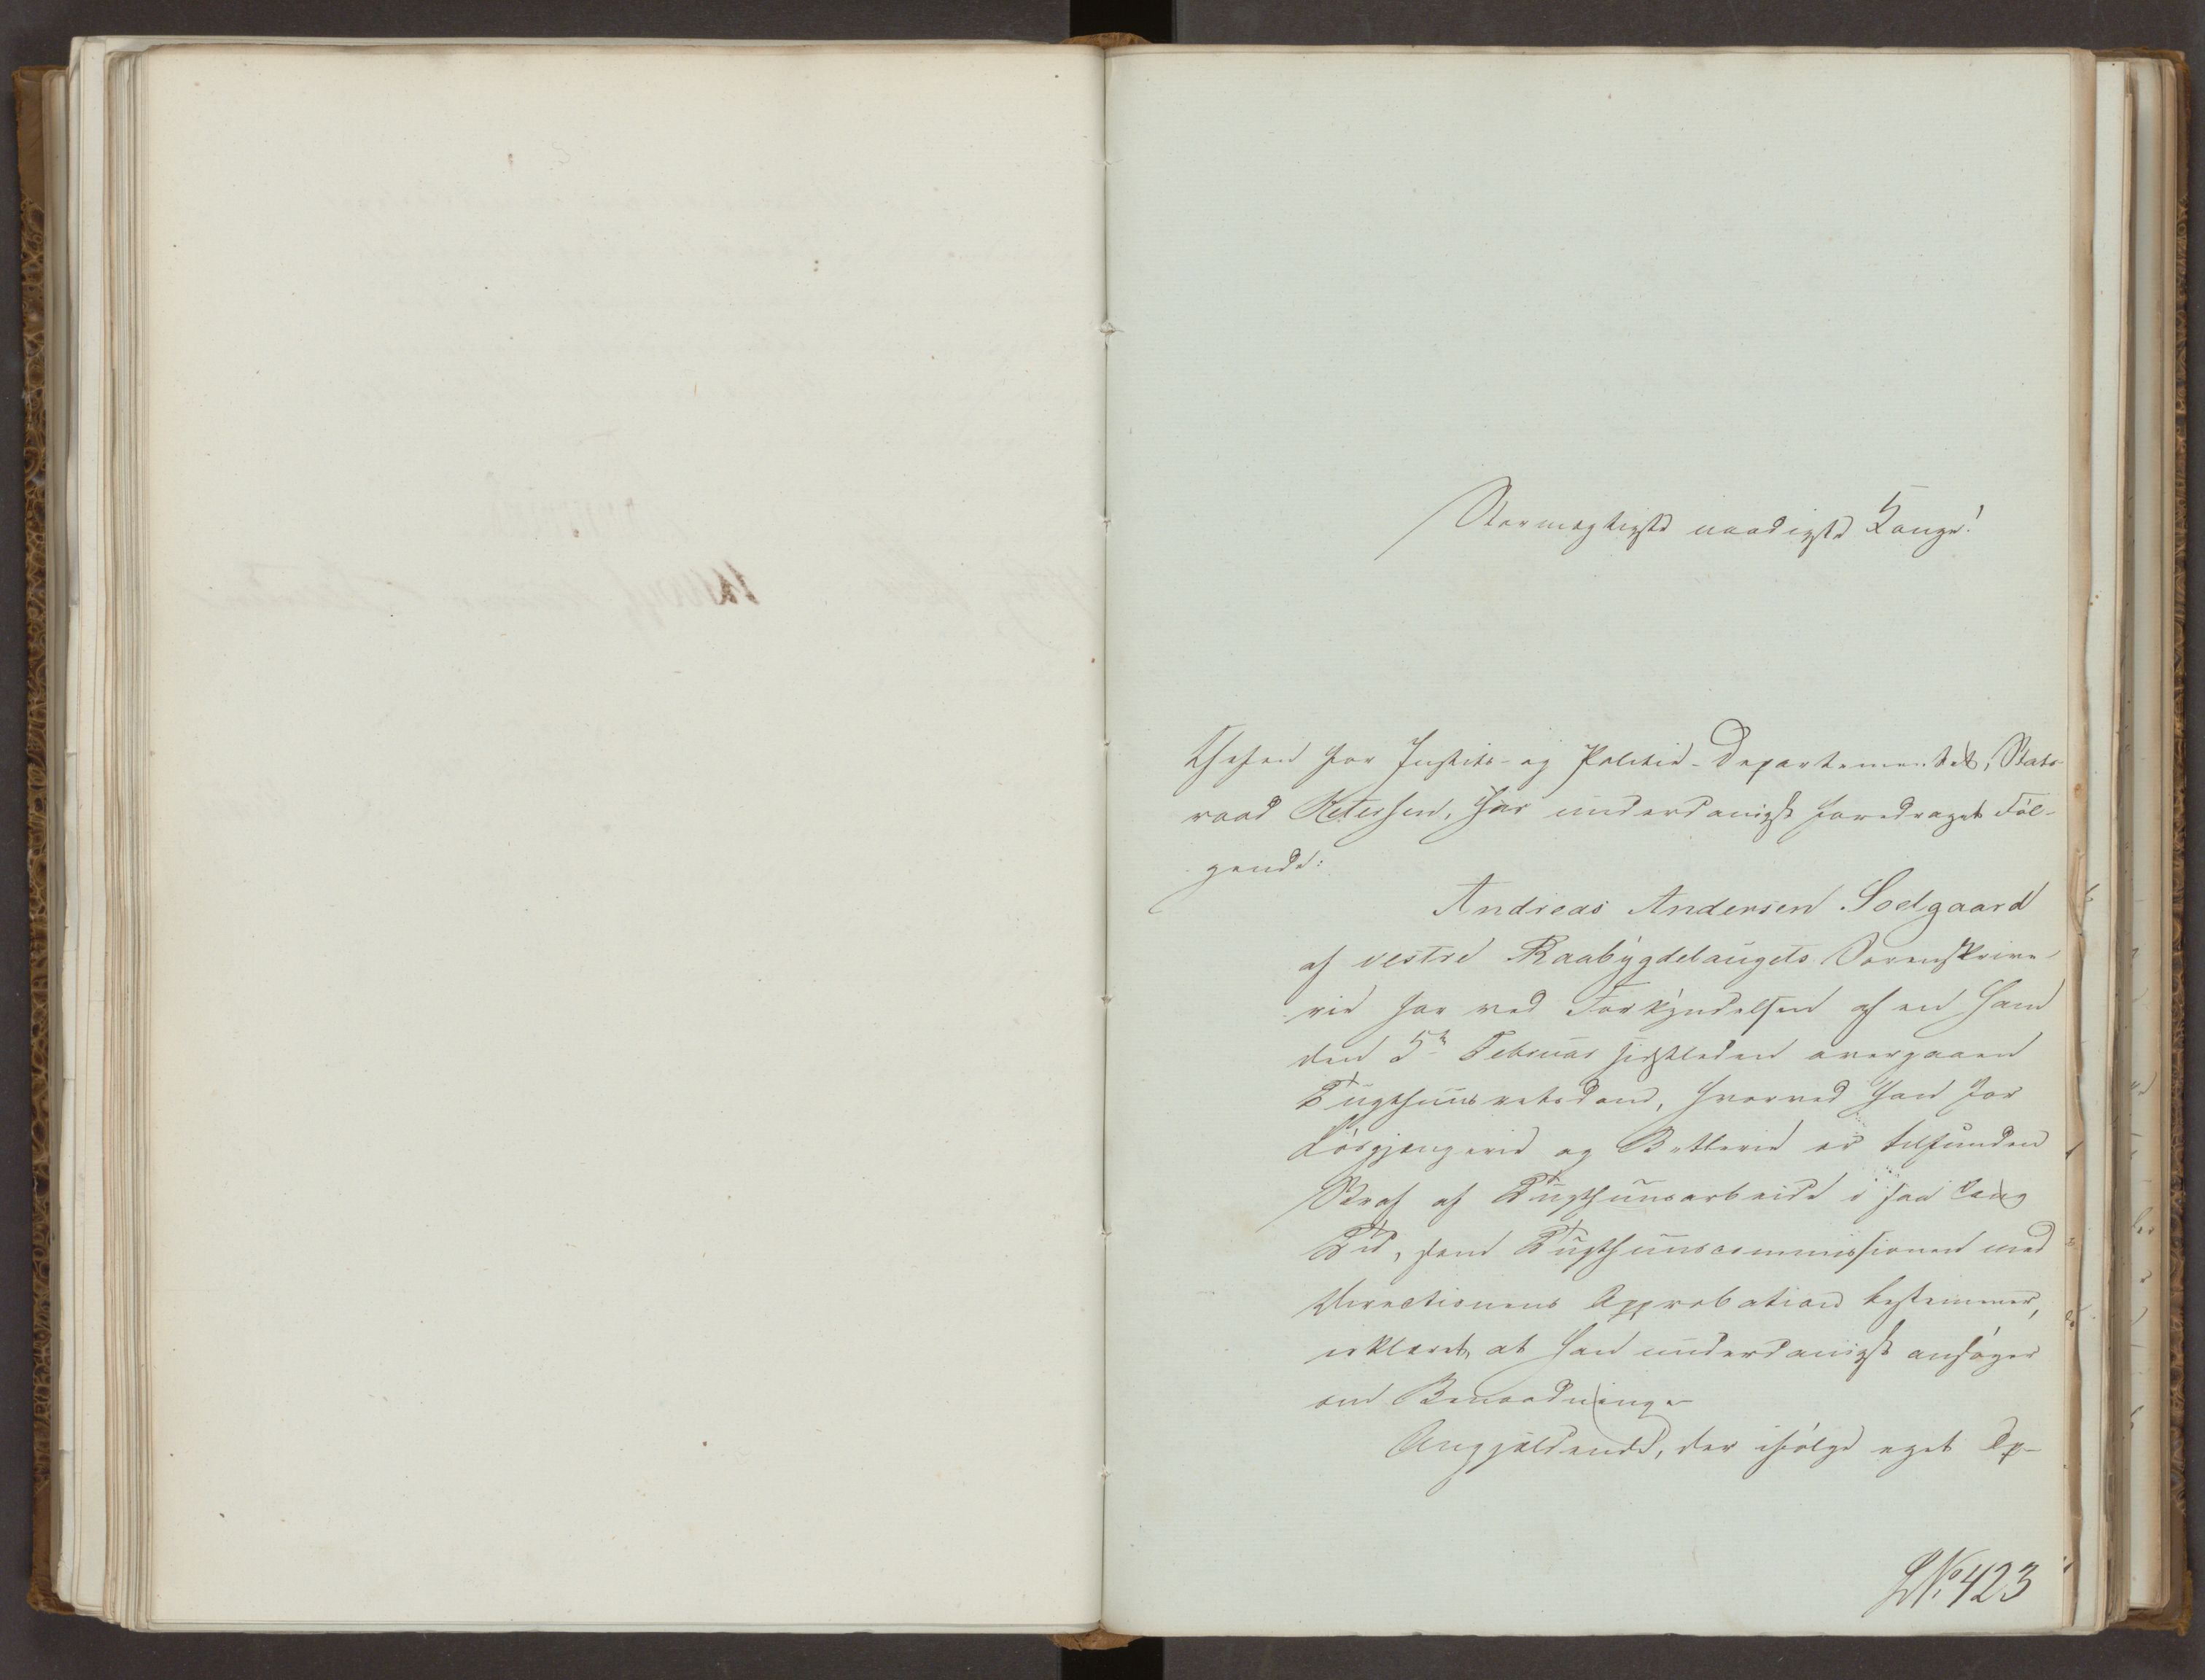 Stormægtigste naadigste Konge!
Chefen for Justits- og Politie-Departementet, Stats-
raad Petersen, har underdanigst foredraget Føl-
gende:
Andreas Andersen Soelgaard
af vestre Raabygdelaugets Sorenskrive-
rie har ved Forkyndelsen af en ham
den 5te Februar sidstleden overgaaen
Tugthuusretsdom, hvorved han for
Løsgjængerie og Betlerie er tilfunden
Straf af Tugthuusarbeide i saa lang
Tid, som Tugthuuscommissionen med
Directionens Approbation bestemmer,
erklæret, at han underdanigst ansøger
om Benaadning.
Angjældende, der ifølge eget Op-
LNo 423